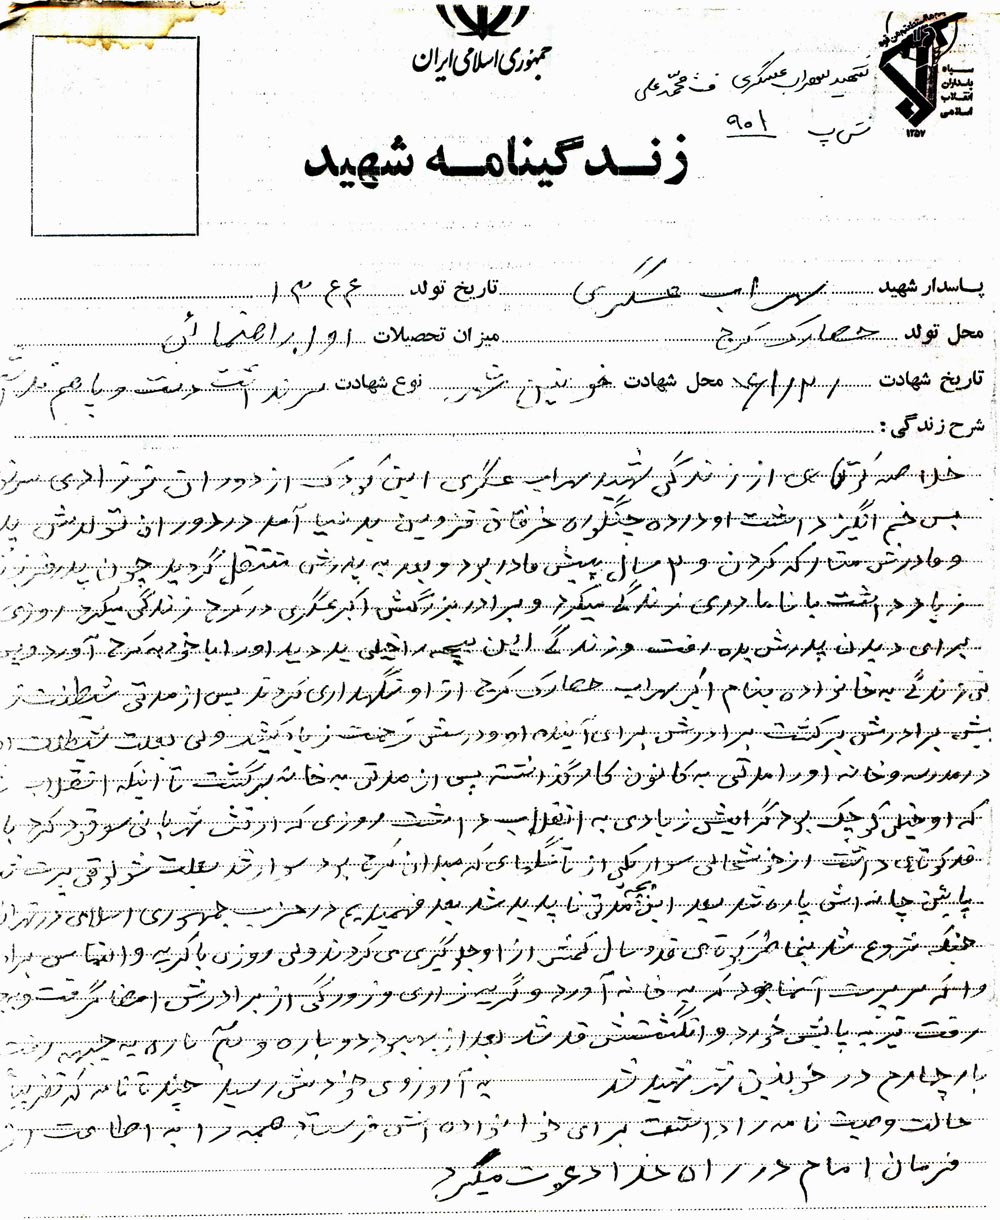 جمهوری اسلامی ایران
سپاه
پاسداران
انقلاب
اسلامی
۱۳۵۷
شهید سهراب عسگری ف محمدعلی
ش پ ۹۰۱
زندگینامه شهید
پاسدار شهید سهراب عسگری تاریخ تولد ۱۳۴۶
محل تولد حصارک کرج میزان تحصیلات اول راهنمائی
تاریخ شهادت محل شهادت خونین شهر نوع شهادت سر نداشت دست و پا هم
شرح زندگی :
خلاصه کوتاهی از زندگی شهید سهراب عسگری این کودک از دوران نوزادی
بس غم انگیز داشت او در ده چنگوره خرقان قزوین بدنیا آمد در دوران تولدش
و مادرش متارکه کردن و ۳ سال پیش مادر بود و بعد به پدرش منتقل گردید چون پدر
زیاد داشت با نامادری زندگی میکرد و برادر بزرگش اکبر عسگری در کرج زندگی میکرد روزی
برای دیدن پدرش بده رفت و زندگی این بچه را خیلی بد دید او را با خود به کرج آورد
زندگی به خانواده بنام اکبر سهراب حصارک کرج از او نگهداری کردند پس از مدتی
پیش برادرش برگشت برادرش برای آینده او و درسش زحمت زیاد کشید ولی بعلت شیطنت
در مدرسه و خانه او را مدتی به کانون کار گذاشته پس از مدتی به خانه برگشت تا اینکه انقلاب
که او خیلی کوچک بود گرایش زیادی به انقلاب داشت روزی که ارتش شهربانی سقوط کرد با
قد کوتاهی داشت از خوشحالی سوار یکی از تانکهای که میدان کرج بود سوار شد بعلت شلوقی پرت
پایین چانه اش پاره شد بعد این بچه مدتی ناپدید شد بعد فهمیدیم در حزب جمهوری اسلامی در تهران
جنگ شروع شد بخاطر کوتاهی قد و سال کمش از او جلوگیری می کردند ولی روزی با گریه و التماس
که سرپرست آنها بود به خانه آورد و گریه زاری و زورکی از برادرش امضا گرفت
رفت تیر به پایش خورد و انگشتش قد شد بعد از بهبود دوباره و سه باره به جبهه رفت
بار چهارم در خونین شهر شهید شد به آرزوی خودش رسید چند تا نامه که تقریبا
حالت وصیت نامه را داشت برای خانواده اش فرستاد همه را به اطاعت از
فرمان امام در راه خدا دعوت میکرد